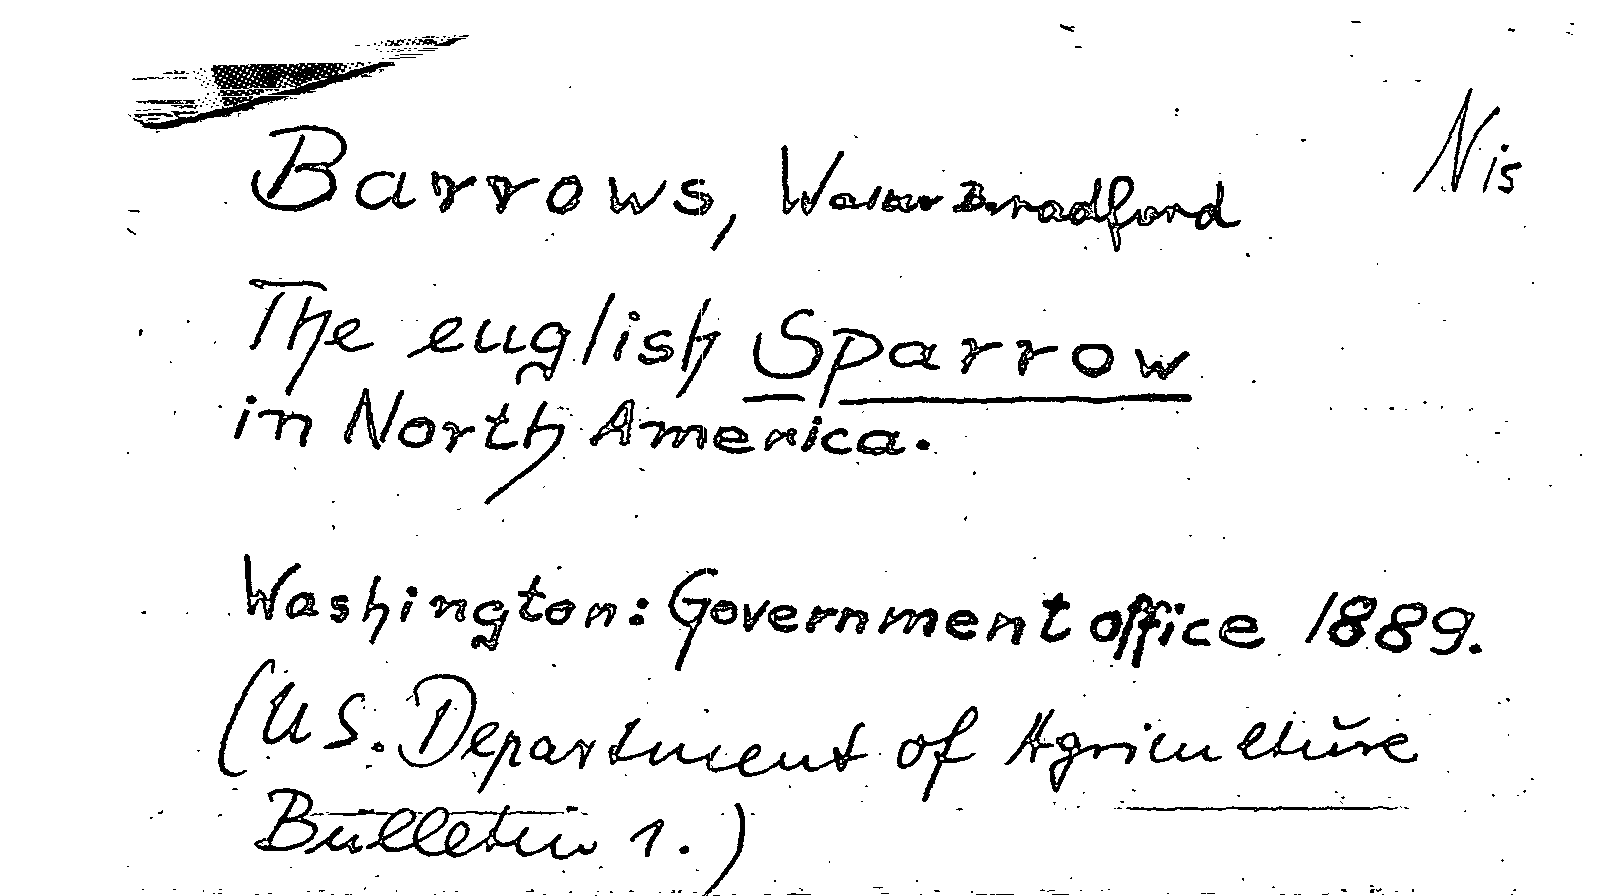 Nis
Barrows, Walter Bradford
The english Sparrow
in North America.
Washington: Government office 1889.
(US. Department of Agriculture
Bulletin 1.)